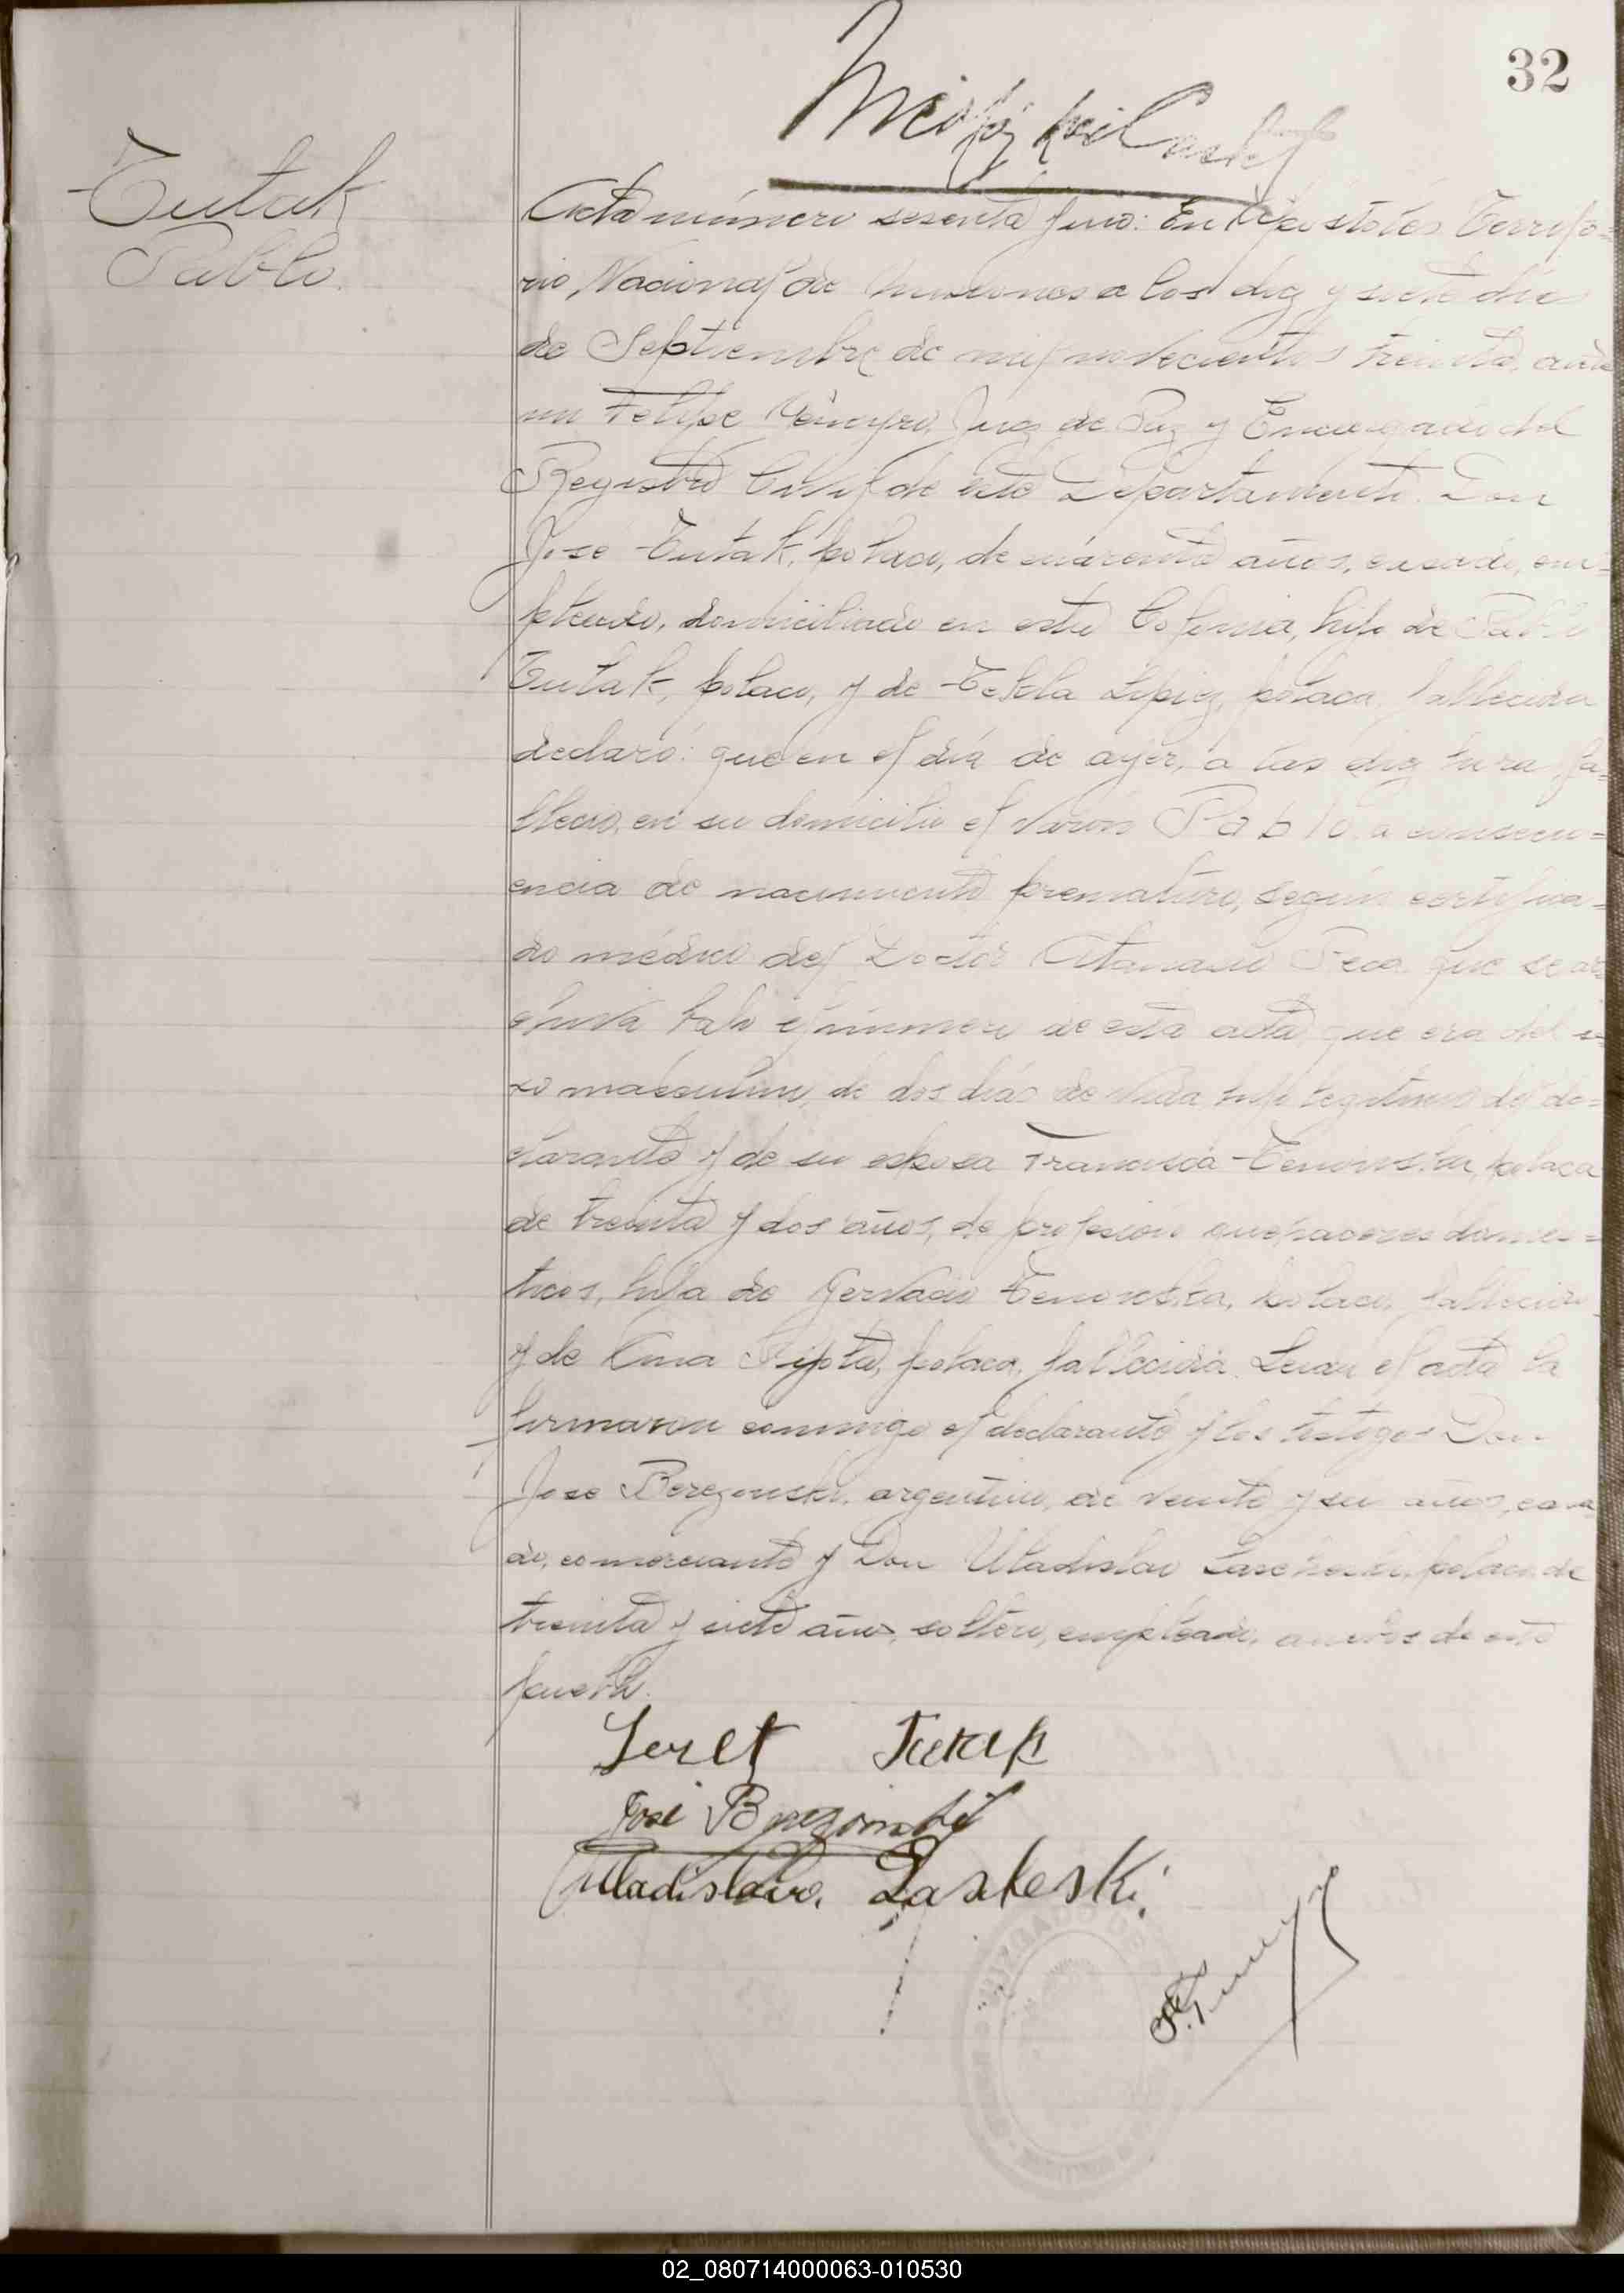 32
Tutak
Pablo.
Acta número sesenta y uno: En Apóstoles Territo=
rio Nacional de Misiones a los diez y siete días
de Septiembre de mil novecientos treinta, ante
mi Felipe Juez de Paz y Encargado del
Registro Civil de este Departamento. Don
José Tutak, polaco, de cuarenta años, casado, em=
pleado, domiciliado en esta Colonia, hijo de Pablo
Tutak, polaco, y de Tekla polaca, fallecida
declaró: que en el día de ayer, a las diez hora, fa=
lleció, en su domicilio el varón Pablo a consecu=
encia de nacimiento prematuro, según certifica=
do médico del Doctor Atanasio que se ar=
chiva bajo el número de esta acta, que era del se=
xo masculino, de dos días de vida, hijo legítimo del de=
clarante y de su esposa Francisca polaca
de treinta y dos años, de profesión quehaceres domés=
ticos, hija de Gervacio polaco, fallecido
y de Ana polaca, fallecida. Leida el acta la
firmaron conmigo el declarante y los testigos Don
José argentino, de veinte y seis años, casa=
do, comerciante y Don Uladislao polaco, de
treinta y siete años, soltero, empleado, ambos de este
pueblo.
Tutak
José
Uladislavo. Laskeski.
02_080714000063-010530